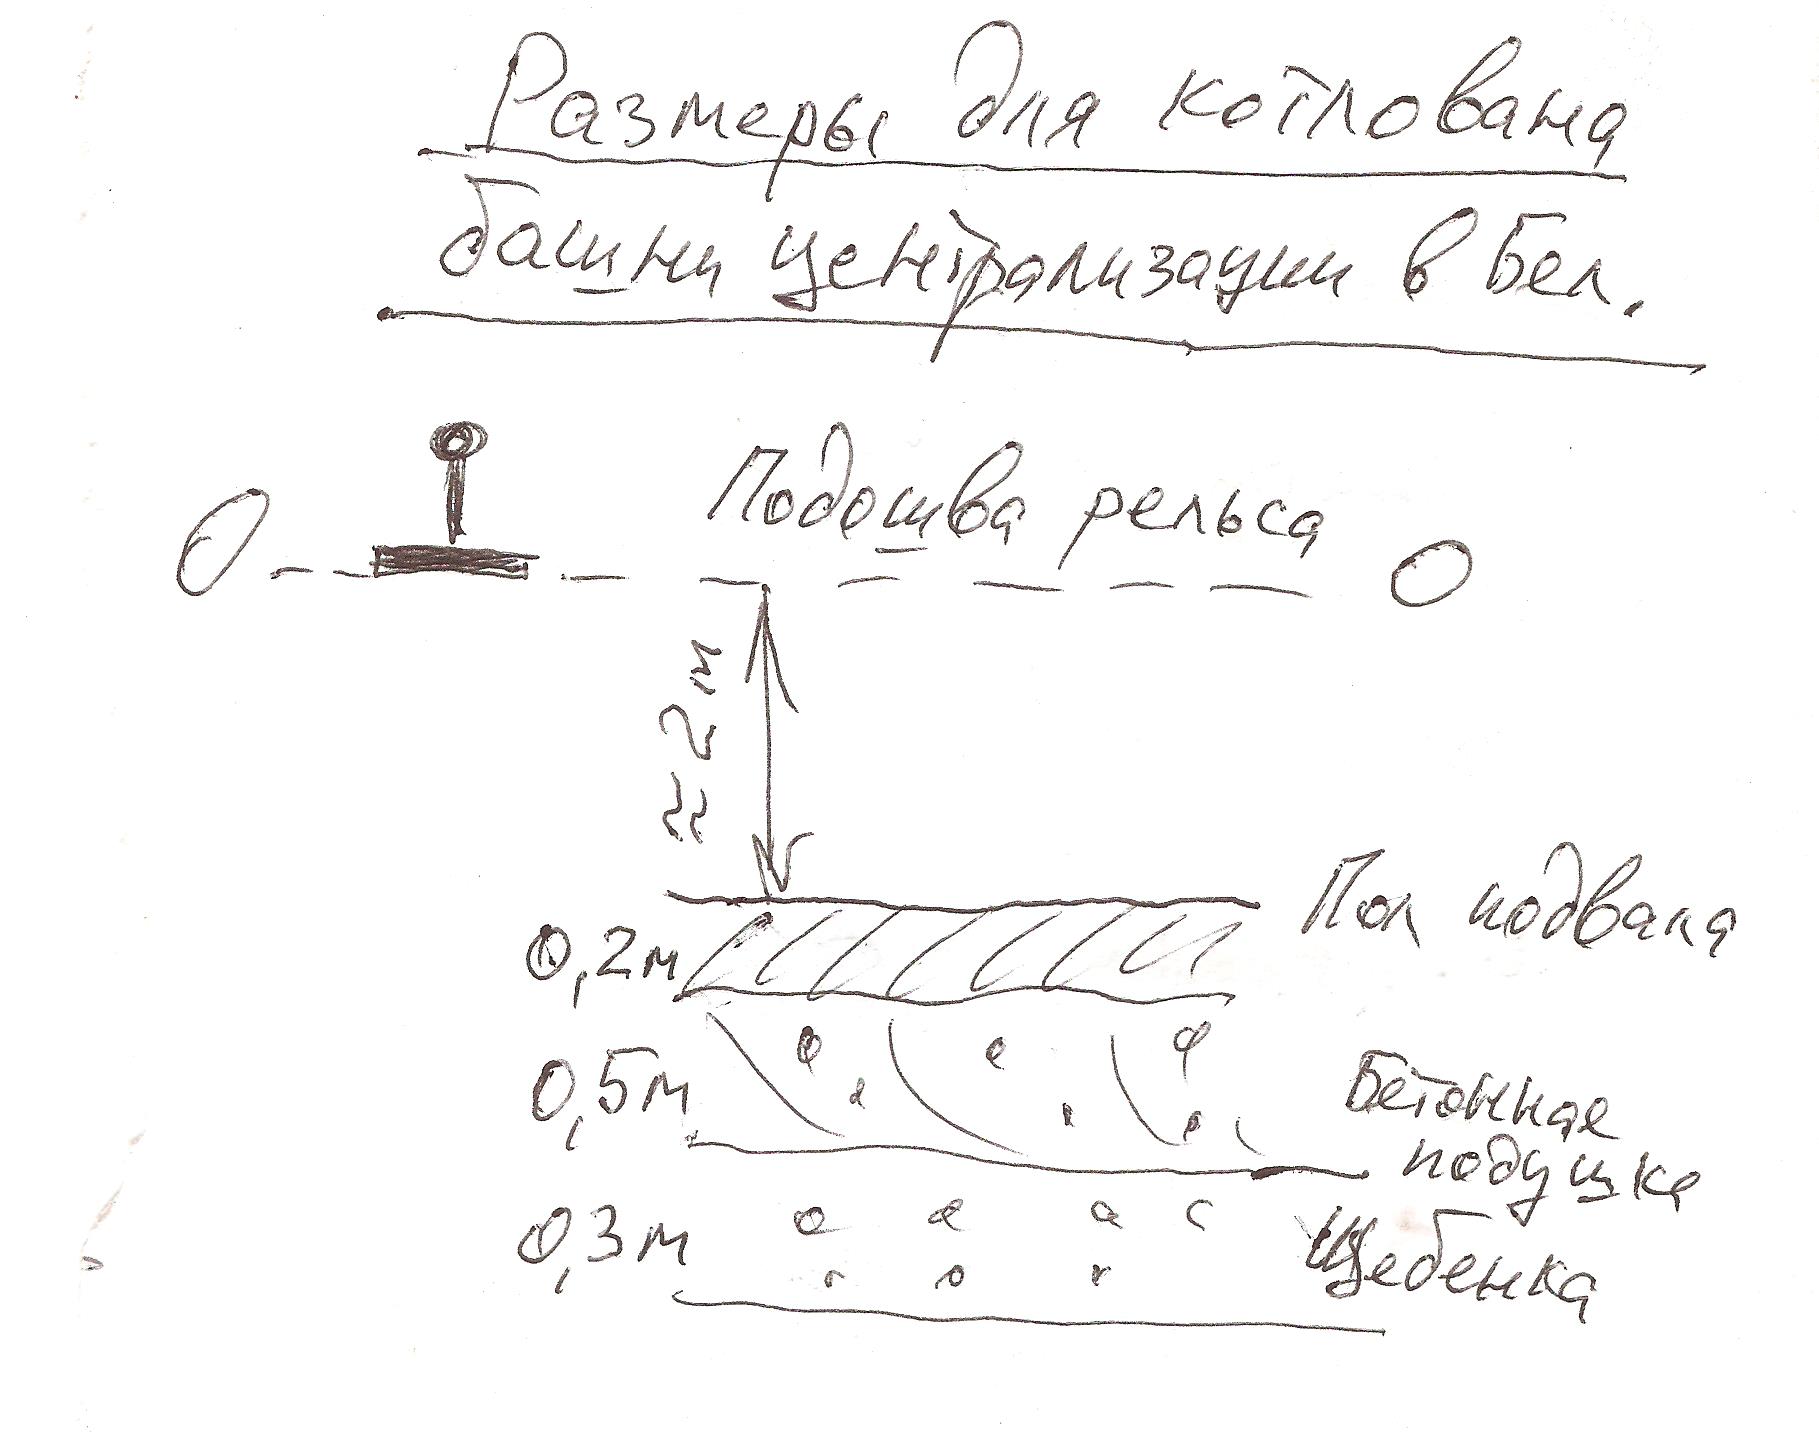 Размеры для котлована
башни централизации в Бел.
Подошва рельса
0
0
≈ 2 м
Пол подвала
0,2м
0,5м
Бетонная
подушка
0,3м
Щебенка